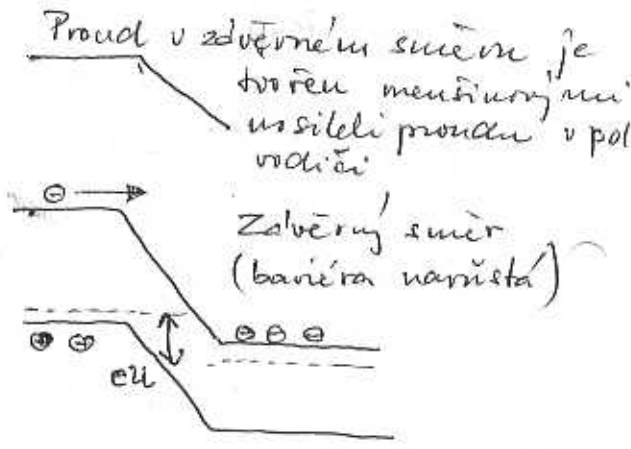 Proud v závěrném směru je
tvořen menšinovými
nositeli proudu v pol
vodiči
⊖
Závěrný směr
(bariéra narůstá)
⊖ ⊖ ⊖
⊕ ⊕
eU